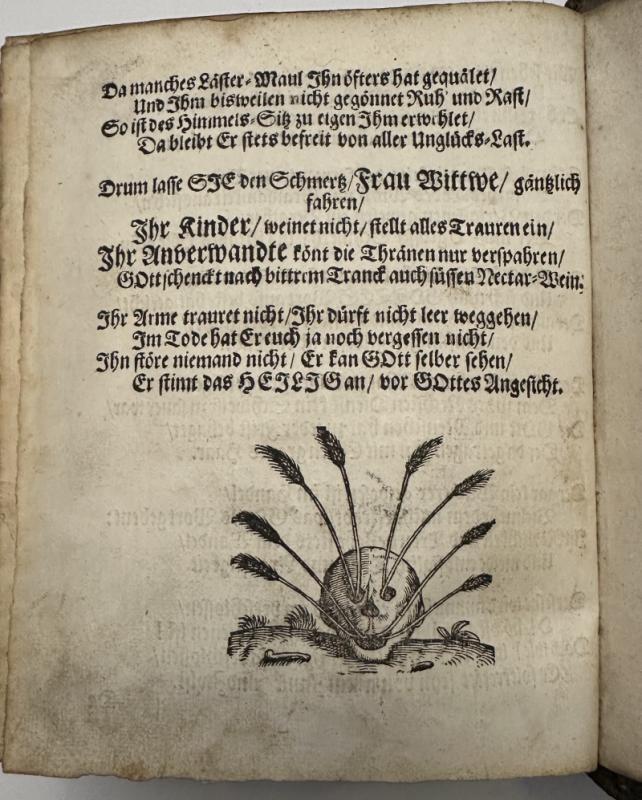 Da manches Läster-Maul Ihn öfters hat gequälet/
Und Ihm bisweilen nicht gegönnet Ruh' und Rast/
So ist des Himmels-Sitz zu eigen Ihm erwehlet/
Da bleibt Er stets befreit von aller Unglücks-Last.
Drum lasse SIE den Schmertz/ Frau Wittwe/ gäntzlich
fahren/
Ihr Kinder/ weinet nicht/ stellt alles Trauren ein/
Ihr Anverwandte könt die Thränen nur verspahren/
GOtt schenckt nach bittrem Tranck auch süssen Nectar-Wein.
Ihr Arme trauret nicht/ Ihr dürft nicht leer weggehen/
Im Tode hat Er euch ja noch vergessen nicht/
Ihn störe niemand nicht/ Er kan GOtt selber sehen/
Er stimt das HEILIG an/ vor GOttes Angesicht.